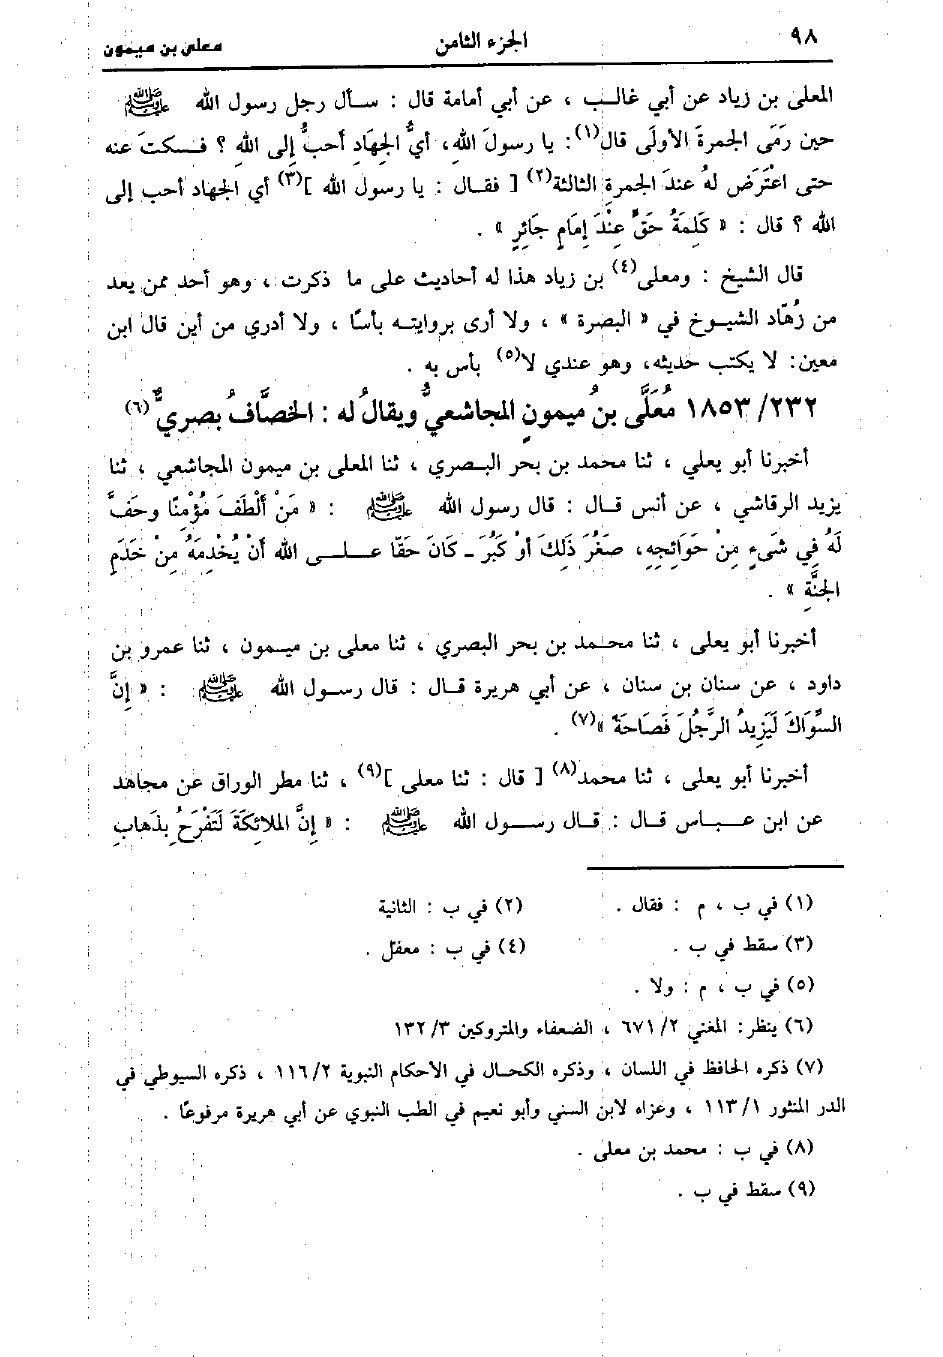 ٩٨ الجزء الثامن معلى بن ميمون
المعلى بن زياد عن أبي غالب ، عن أبي أمامة قال : سأل رجل رسول الله ﷺ
حين رَمَى الجمرةَ الأولَى قال(١): يا رسولَ اللهِ، أيُّ الجهَادِ أحبُّ إلى اللهِ ؟ فسكتَ عنه
حتى اعْتَرَض لهُ عندَ الجمرةِ الثالثة(٢) [ فقال : يا رسول الله ](٣) أي الجهاد أحب إلى
الله ؟ قال : « كَلِمَةُ حَقٍّ عِنْدَ إمَامٍ جَائِرٍ » .
قال الشيخ : ومعلى(٤) بن زياد هذا له أحاديث على ما ذكرت ، وهو أحد ممن يعد
من زُهّاد الشيوخ في « البصرة » ، ولا أرى بروايته بأسًا ، ولا أدري من أين قال ابن
معين: لا يكتب حديثه، وهو عندي لا(٥) بأس به .
١٨٥٣/٢٣٢ مُعَلَّى بنُ ميمونٍ المجاشعيُّ ويقالُ له : الخصَّافُ بصريٌّ(٦)
أخبرنا أبو يعلي ، ثنا محمد بن بحر البصري ، ثنا المعلى بن ميمون المجاشعي ، ثنا
يزيد الرقاشي ، عن أنس قال : قال رسول الله ﷺ : « مَنْ أَلْطَفَ مُؤْمِنًا وحَفَّ
لَهُ فِي شَىءٍ مِنْ حَوَائِجِهِ، صَغُرَ ذَلِكَ أوْ كَبُرَ ـ كَانَ حَقًا على الله أنْ يُخْدِمَهُ مِنْ خَدَمِ
الجنَّةِ » .
أخبرنا أبو يعلى ، ثنا محمد بن بحر البصري ، ثنا معلى بن ميمون ، ثنا عمرو بن
داود ، عن سنان بن سنان ، عن أبي هريرة قال : قال رسول الله ﷺ : « إِنَّ
السِّوَاكَ لَيَزِيدُ الرَّجُلَ فَصَاحَةً »(٧) .
أخبرنا أبو يعلى ، ثنا محمد(٨) [ قال : ثنا معلى ](٩) ، ثنا مطر الوراق عن مجاهد
عن ابن عباس قال : قال رسول الله ﷺ : « إنَّ الملائكَةَ لَتَفْرَحُ بِذَهابِ
(١) في ب ، م : فقال . (٢) في ب : الثانية
(٣) سقط في ب . (٤) في ب : معفل .
(٥) في ب ، م : ولا .
(٦) ينظر: المغني ٢/ ٦٧١ ، الضعفاء والمتروكين ٣/ ١٣٢
(٧) ذكره الحافظ في اللسان ، وذكره الكحال في الأحكام النبوية ٢/ ١١٦ ، ذكره السيوطي في
الدر المنثور ١/ ١١٣ ، وعزاه لابن السني وأبو نعيم في الطب النبوي عن أبي هريرة مرفوعًا .
(٨) في ب : محمد بن معلى .
(٩) سقط في ب .